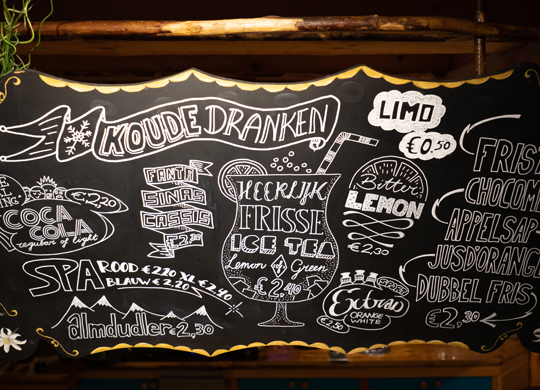 KOUDE DRANKEN
LIMO
€0.50
COCA
COLA
regular of light
€2,20
FANTA
SINAS
CASSIS
HEERLIJK
FRISSE
ICE TEA
Lemon of Green
€2,40
Bitter
LEMON
€2,30
FRIS
CHOCOM
APPELSAP
JUS D'ORANGE
DUBBEL FRIS
€2,30
SPA ROOD €2,20 XL €2,40
BLAUW €2,20
almdudler €2,30
Extran
ORANGE
WHITE
€2,50